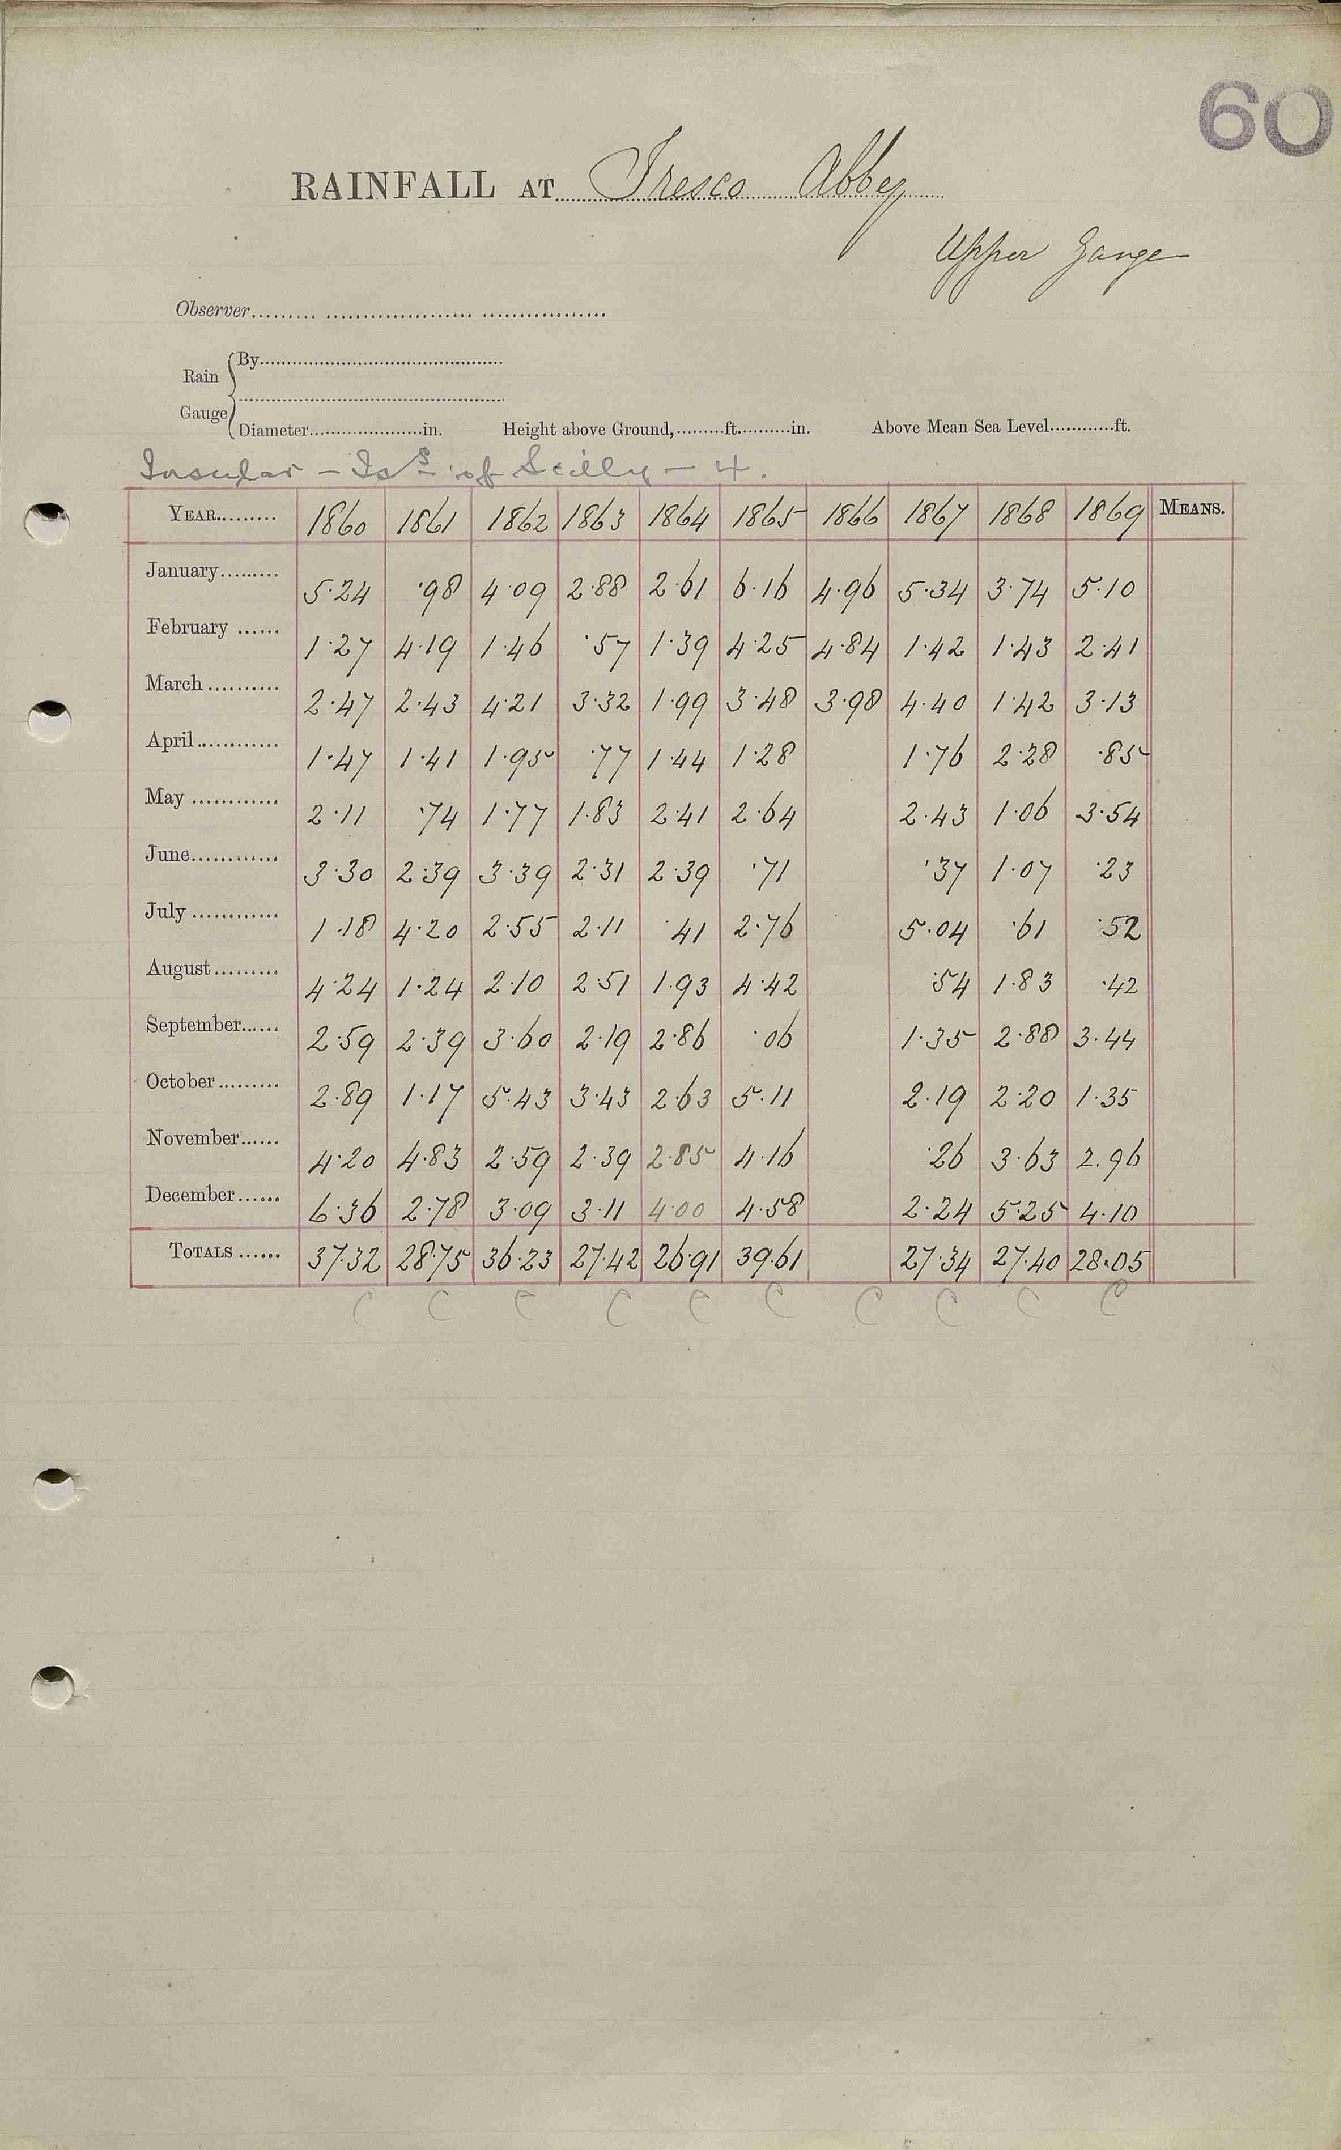 60
RAINFALL AT Tresco Abbey
Upper Gauge
Observer
Rain Gauge { By
Diameter in. Height above Ground, ft. in. Above Mean Sea Level ft.
Insular - Is.s of Scilly - 4.
YEAR 1860 1861 1862 1863 1864 1865 1866 1867 1868 1869 MEANS.
January 5.24 .98 4.09 2.88 2.61 6.16 4.96 5.34 3.74 5.10
February 1.27 4.19 1.46 .57 1.39 4.25 4.84 1.42 1.43 2.41
March 2.47 2.43 4.21 3.32 1.99 3.48 3.98 4.40 1.42 3.13
April 1.47 1.41 1.95 .77 1.44 1.28 1.76 2.28 .85
May 2.11 .74 1.77 1.83 2.41 2.64 2.43 1.06 3.54
June 3.30 2.39 3.39 2.31 2.39 .71 .37 1.07 .23
July 1.18 4.20 2.55 2.11 .41 2.76 5.04 .61 .52
August 4.24 1.24 2.10 2.51 1.93 4.42 .54 1.83 .42
September 2.59 2.39 3.60 2.19 2.86 .06 1.35 2.88 3.44
October 2.89 1.17 5.43 3.43 2.63 5.11 2.19 2.20 1.35
November 4.20 4.83 2.59 2.39 2.85 4.16 .26 3.63 2.96
December 6.36 2.78 3.09 3.11 4.00 4.58 2.24 5.25 4.10
TOTALS 37.32 28.75 36.23 27.42 26.91 39.61 27.34 27.40 28.05
C C C C C C C C C C